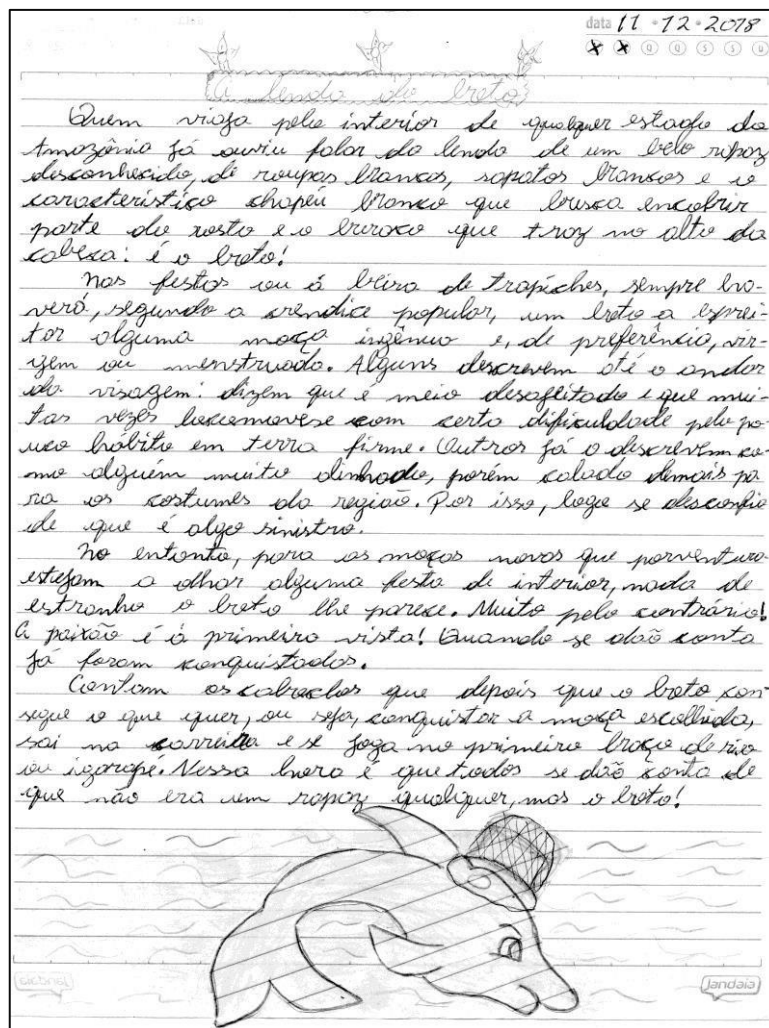 data 11 • 12 • 2018
Q Q S S D
A lenda do boto
Quem viaja pelo interior de qualquer estado da
Amazônia já ouviu falar da lenda de um belo rapaz
desconhecido, de roupas brancas, sapatos brancos e o
característico chapéu branco que busca encobrir
parte do rosto e o buraco que traz no alto da
cabeça: é o boto!
Nas festas ou à beira de trapiches, sempre ha-
verá, segundo a crendice popular, um boto a esprei-
tar alguma moça ingênua e, de preferência, vir-
gem ou menstruada. Alguns descrevem até o andar
da visagem: dizem que é meio desajeitado e que mui-
tas vezes locomovese com certa dificuldade pelo po-
uco hábito em terra firme. Outros já o descrevem co-
mo alguém muito alinhado, porém calado demais pa-
ra os costumes da região. Por isso, logo se desconfia
de que é algo sinistro.
No entanto, para as moças novas que porventura
estejam a olhar alguma festa de interior, nada de
estranho o boto lhe parece. Muito pelo contrário!
A paixão é à primeira vista! Quando se dão conta
já foram conquistadas.
Contam os caboclos que depois que o boto con-
segue o que quer, ou seja, conquistar a moça escolhida,
sai na carreira e se joga no primeiro braço de rio
ou igarapé. Nessa hora é que todos se dão conta de
que não era um rapaz qualquer, mas o boto!
jandaia